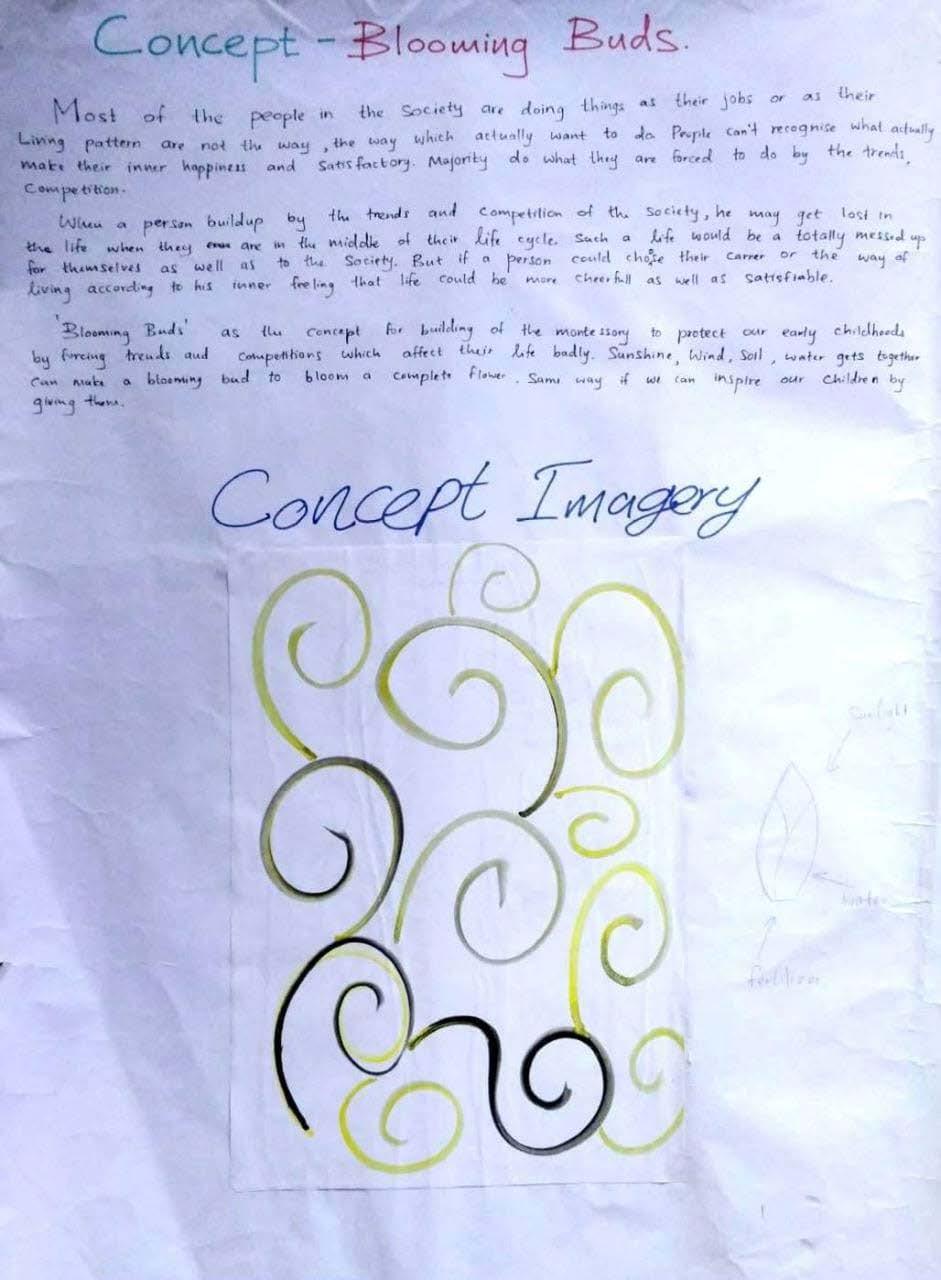 Concept - Blooming Buds.
Most of the people in the Society are doing things as their jobs or as their
Living pattern are not the way , the way which actually want to do. People can't recognise what actually
make their inner happiness and Satisfactory. Majority do what they are forced to do by the trends,
Competition.
When a person buildup by the trends and competition of the Society, he may get lost in
the life when they are in the middle of their life cycle. Such a life would be a totally messed up
for themselves as well as to the Society. But if a person could choise their carrer or the way of
living according to his inner freling that life could be more cheerfull as well as satisfiable.
'Blooming Buds' as the concept for building of the montessory to protect our early childhoods
by forcing trends and competitions which affect their life badly. Sunshine, Wind, Soil, water gets together
Can make a blooming bud to bloom a complete flower. Same way if we can inspire our children by
giving them.
Concept Imagery
Sunlight
water
fertilizer